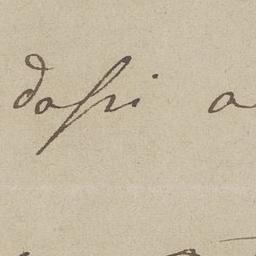 doſsi a